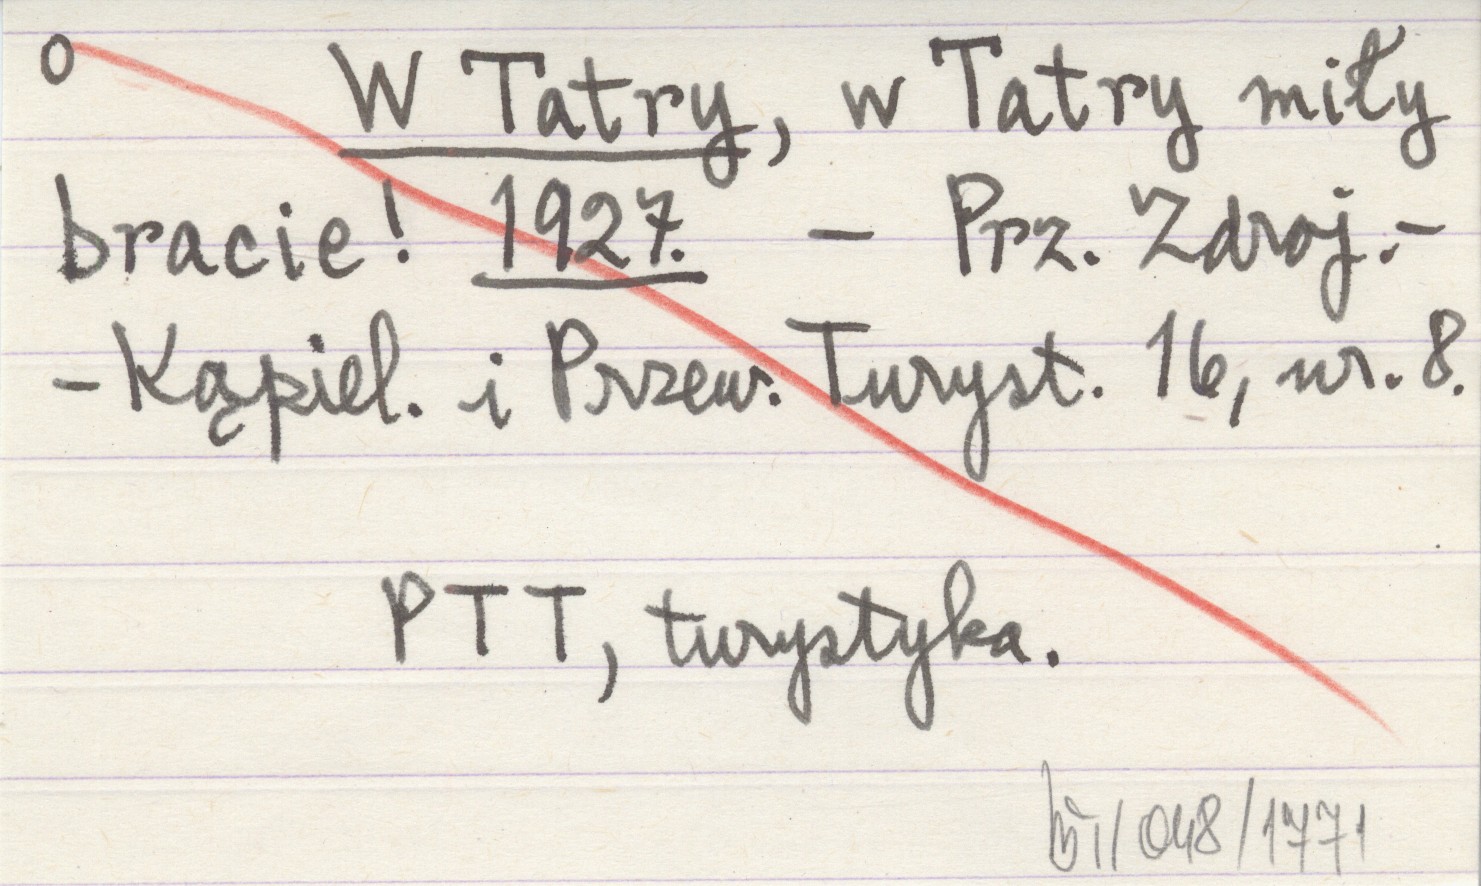 o W Tatry, w Tatry miły
bracie! 1927. – Prz. Zdroj.-
-Kąpiel. i Przew. Turyst. 16, nr. 8.
PTT, turystyka.
/048/1771